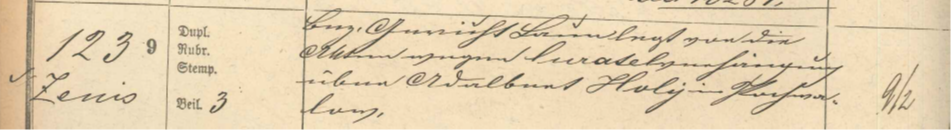 1239
Zenis
Dupl.
Rubr.
Stemp.
Beil. 3
Bez. Gericht Laun legt vor die
Akten wegen Curatelsverhängung
über Adalbert Holý in Pochwa-
low.
9/2